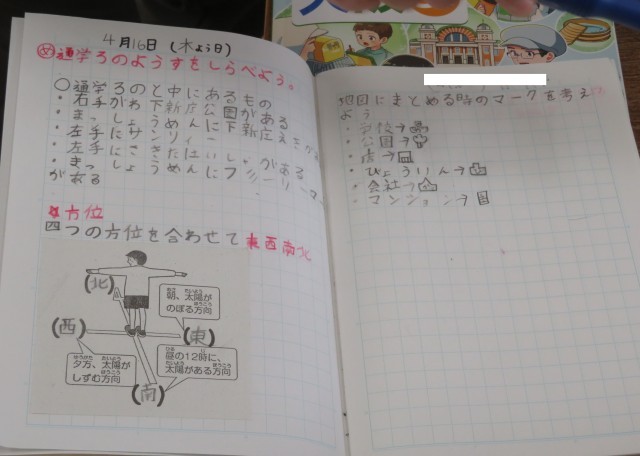 4月16日(木よう日)
め通学ろのようすをしらべよう。
○通学ろのと中にあるもの
・右手がわ下新庄公園がある
・まっしょうめんに下新庄えきが
・左手にサンリィー
・左手にさきたはいし。がある
・まっしょうめんにフリーリーマ
がある
☆方位
四つの方位を合わせて東西南北
(北)
朝、太陽が
のぼる方向
(西)
(東)
夕方、太陽が
しずむ方向
昼の12時に、
太陽がある方向
(南)
地図にまとめる時のマークを考え
よう
・学校→
・公園→
・店→
・びょういん→
・会社→
・マンション→